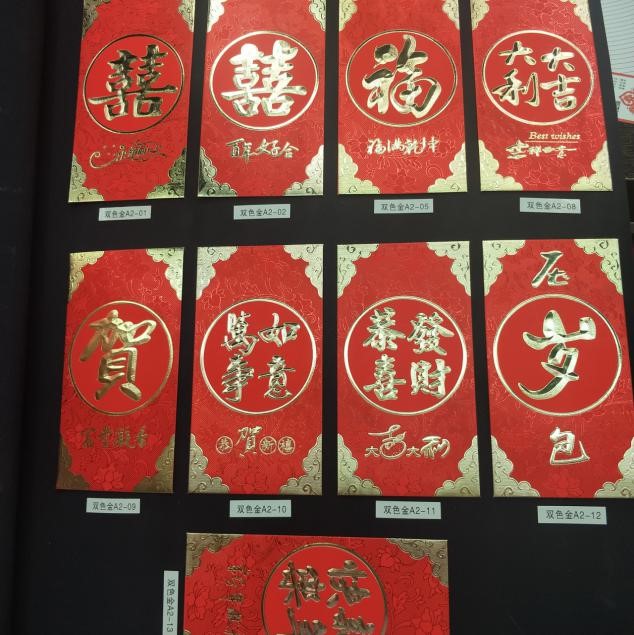 囍
双色金A2-01
囍
百年好合
双色金A2-02
福
福满乾坤
双色金A2-05
大吉
大利
Best wishes
吉祥如意
双色金A2-08
賀
双色金A2-09
如意
萬事
恭賀新禧
双色金A2-10
發財
恭喜
大吉大利
双色金A2-11
压
岁
包
双色金A2-12
双色金A2-13